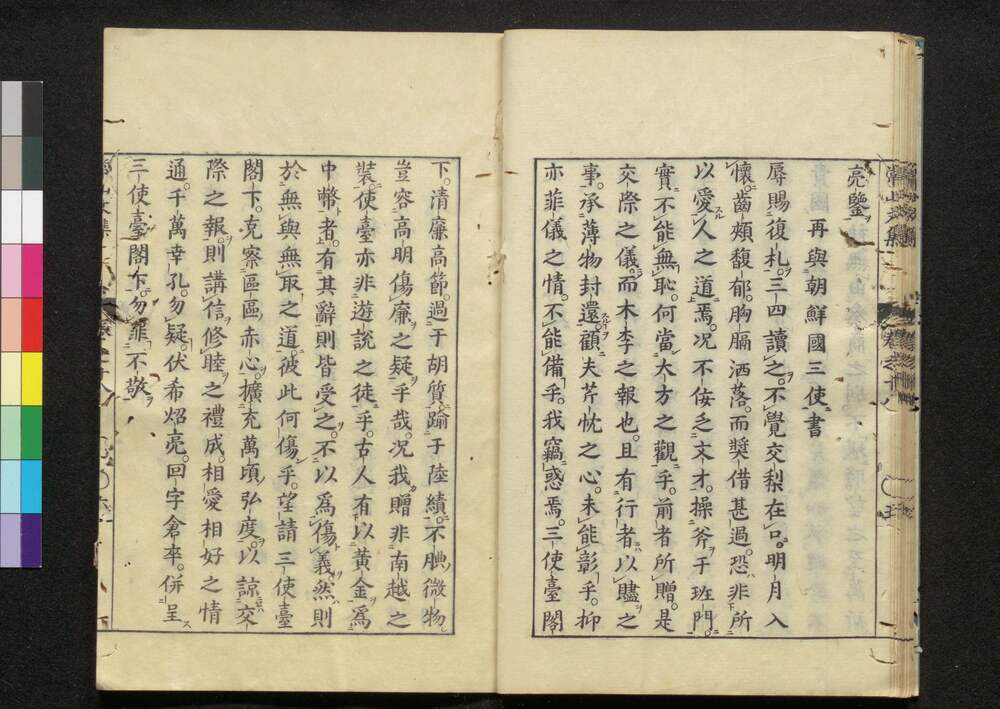 亮鑒
再與朝鮮國三使書
辱賜復札三四讀之不覺交梨在口明月入
懷齒頰馥郁胸膈洒落而奬借甚過恐非所
以愛人之道焉况不佞乏文才操斧于班門
實不能無恥何當大方之觀乎前者所贈是
交際之儀而木李之報也且有行者以贐之
事承薄物封還顧夫芹忱之心未能彰乎抑
亦菲儀之情不能備乎我竊惑焉三使臺閣
下清廉高節過于胡質踰于陸績不腆微物
豈容高明傷廉之疑乎哉况我贈非南越之
裝使臺亦非遊說之徒乎古人有以黃金爲
中幣者有其辭則皆受之不以爲傷義然則
於無與無取之道彼此何傷乎望請三使臺
閣下克察區區赤心擴充萬頃弘度以諒交
際之報則講信修睦之禮成相愛相好之情
通千萬幸孔勿疑伏希炤亮回字倉卒併呈
三使臺閣下勿罪不敬